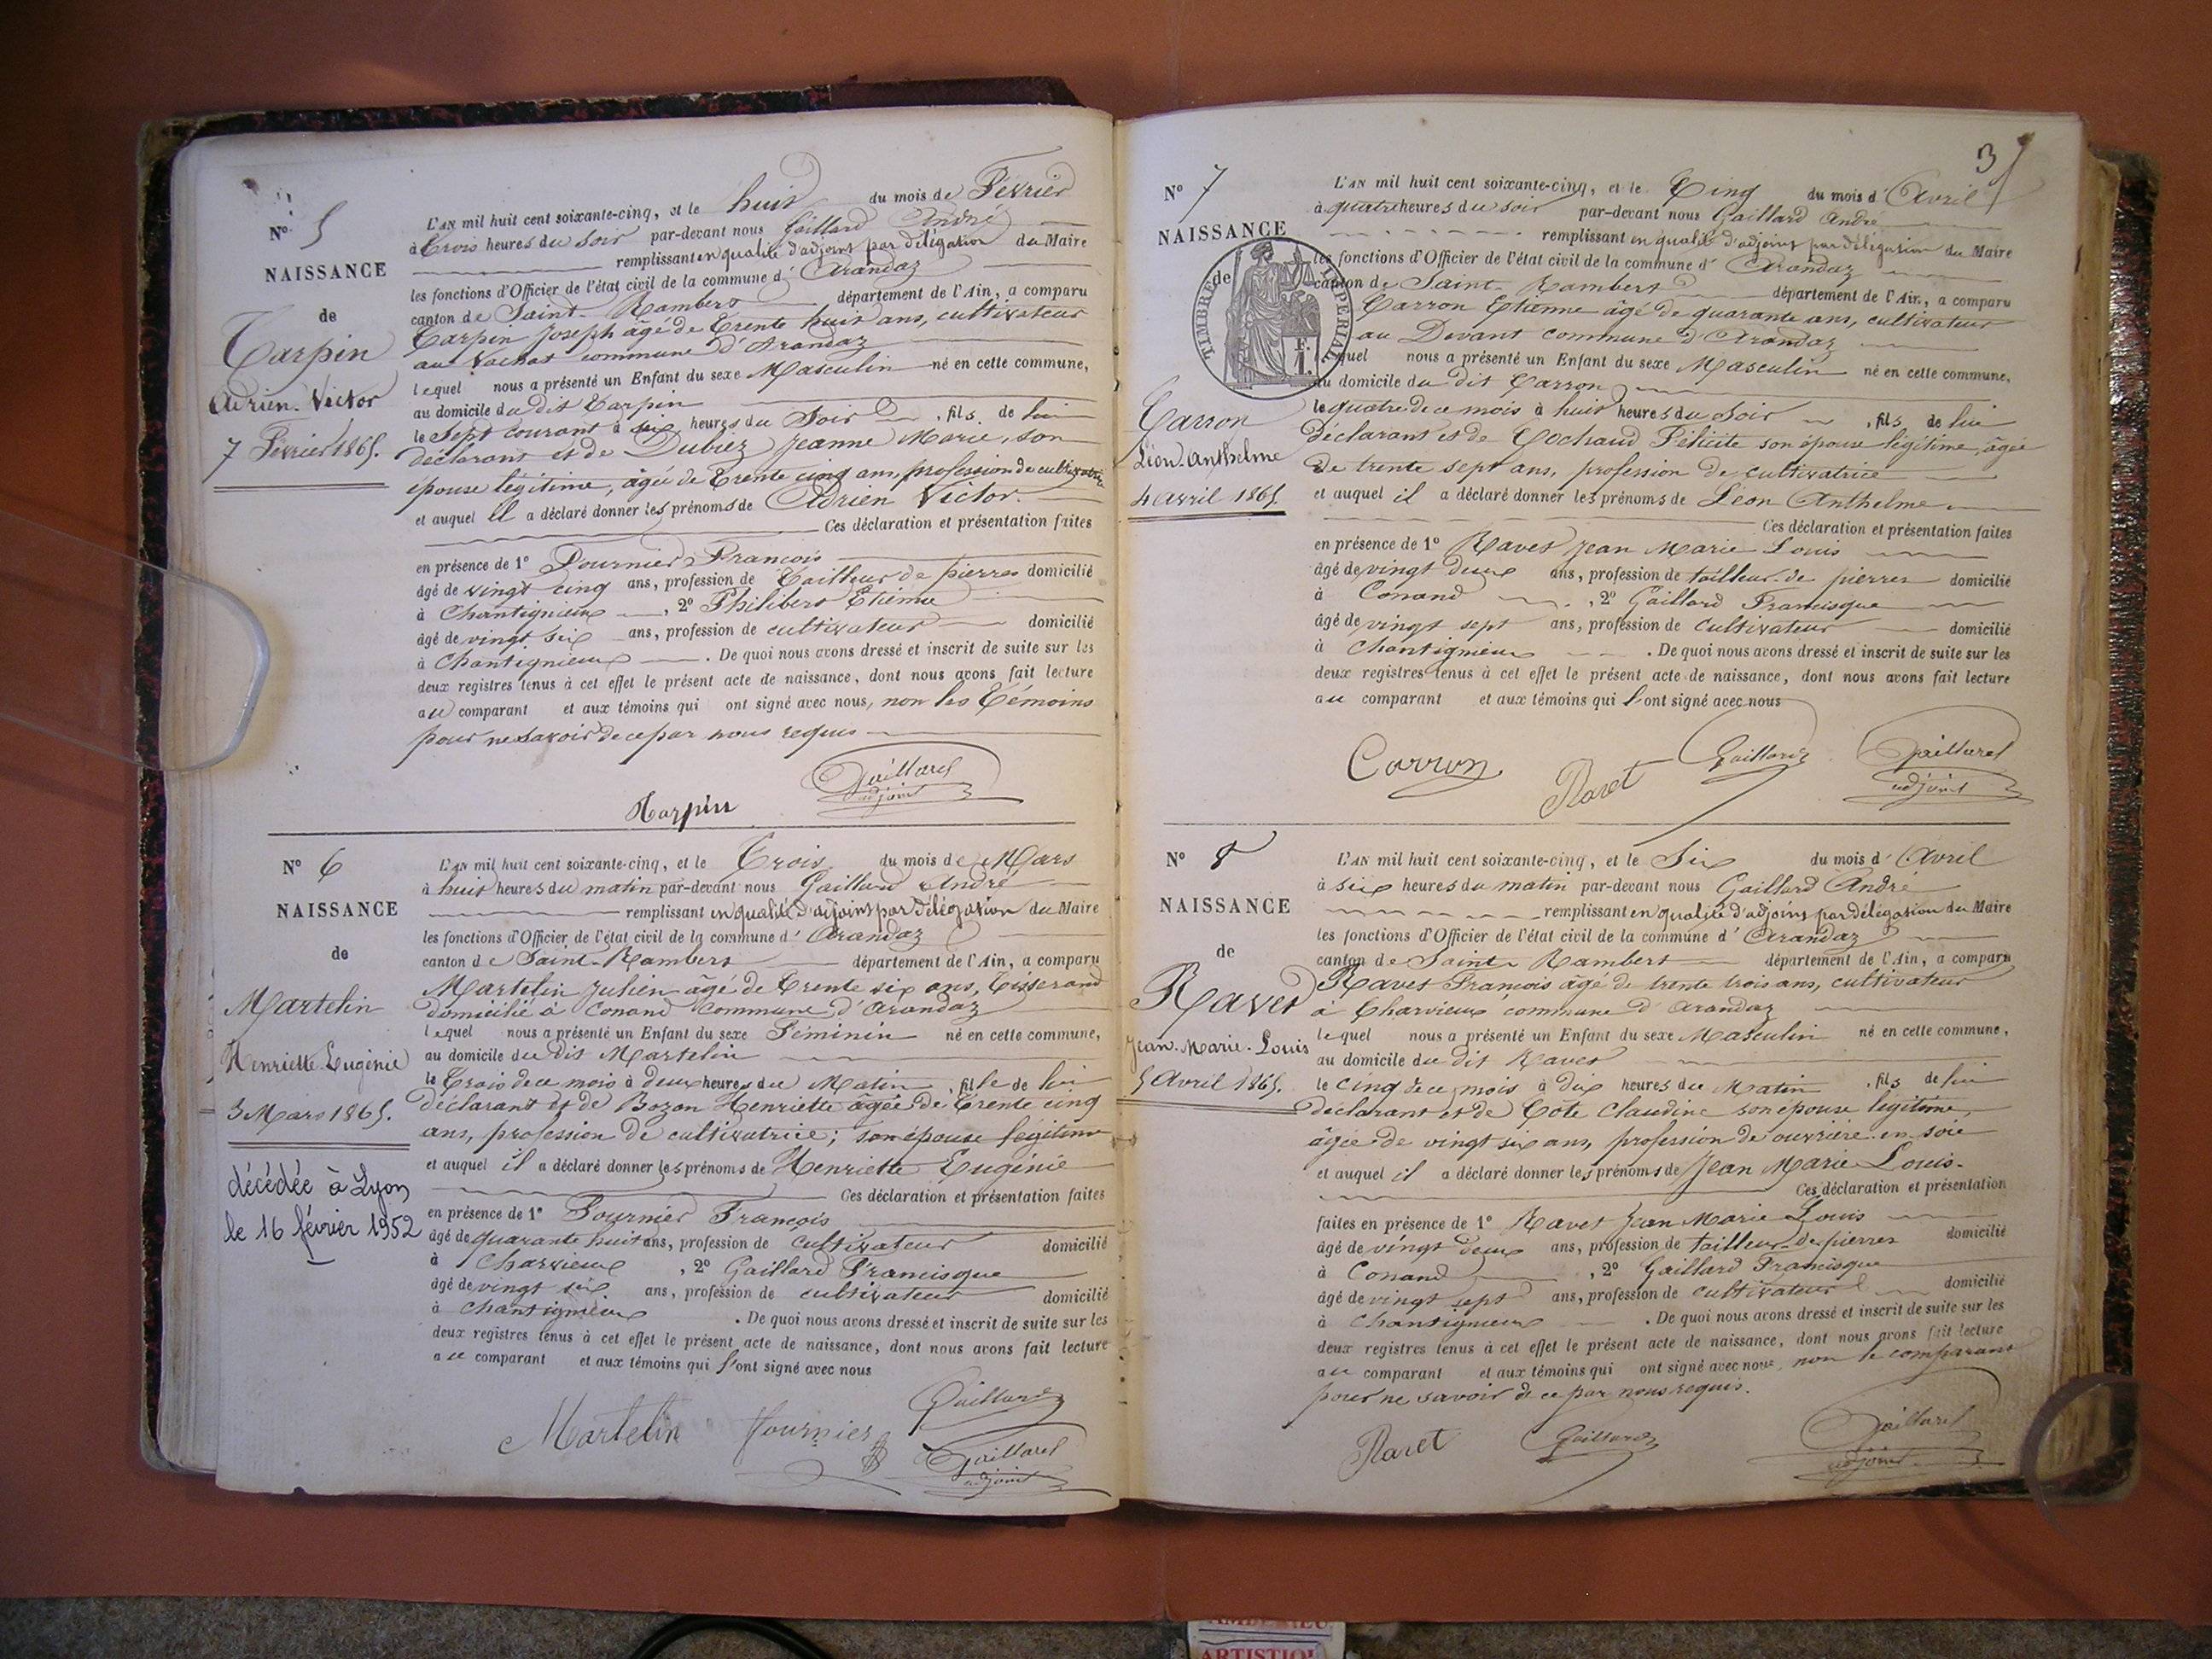 N° 5
NAISSANCE
de
Tarpin
Adrien Victor
7 Février 1865.
L'AN mil huit cent soixante-cinq, et le huit du mois de Février
à trois heures du soir par-devant nous Gaillard André
remplissant en qualité d'adjoint par délégation du Maire
les fonctions d'Officier de l'état civil de la commune d' Arandaz
canton de Saint-Rambert département de l'Ain, a comparu
Tarpin Joseph âgé de trente huit ans, cultivateur
au Vachat commune d'Arandaz
lequel nous a présenté un Enfant du sexe Masculin né en cette commune,
au domicile du dit Tarpin
le sept courant à six heures du Soir, fils de lui
déclarant et de Dubiez Jeanne Marie, son
épouse légitime, âgée de trente cinq ans, profession de cultivatrice
et auquel il a déclaré donner les prénoms de Adrien Victor.
Ces déclaration et présentation faites
en présence de 1° Fournier François
âgé de vingt cinq ans, profession de tailleur de pierres domicilié
à Chantignieux, 2° Philibert Etienne
âgé de vingt six ans, profession de cultivateur domicilié
à Chantignieux. De quoi nous avons dressé et inscrit de suite sur les
deux registres tenus à cet effet le présent acte de naissance, dont nous avons fait lecture
au comparant et aux témoins qui ont signé avec nous, non les témoins
pour ne savoir de ce par nous requis
Tarpin
Gaillard
adjoint
N° 6
NAISSANCE
de
Martelin
Henriette Eugénie
3 Mars 1865.
décédée à Lyon
le 16 février 1952
L'AN mil huit cent soixante-cinq, et le trois du mois de Mars
à huit heures du matin par-devant nous Gaillard André
remplissant en qualité d'adjoint par délégation du Maire
les fonctions d'Officier de l'état civil de la commune d' Arandaz
canton de Saint-Rambert département de l'Ain, a comparu
Martelin Julien âgé de trente six ans, tisserand
domicilié à Conand commune d'Arandaz
lequel nous a présenté un Enfant du sexe Féminin né en cette commune,
au domicile du dit Martelin
le trois de ce mois à deux heures du Matin, fille de lui
déclarant et de Bozon Henriette âgée de trente cinq
ans, profession de cultivatrice; son épouse légitime
et auquel il a déclaré donner les prénoms de Henriette Eugénie
Ces déclaration et présentation faites
en présence de 1° Fournier François
âgé de quarante huit ans, profession de cultivateur domicilié
à Charvieux, 2° Gaillard Francisque
âgé de vingt six ans, profession de cultivateur domicilié
à Chantignieux. De quoi nous avons dressé et inscrit de suite sur les
deux registres tenus à cet effet le présent acte de naissance, dont nous avons fait lecture
au comparant et aux témoins qui l'ont signé avec nous
Gaillard
Martelin Fournier
Gaillard
adjoint
3
N° 7
NAISSANCE
de
TIMBRE IMPERIAL
F. 1.
Carron
Léon Anthelme
4 Avril 1865.
L'AN mil huit cent soixante-cinq, et le Cinq du mois d' Avril
à quatre heures du soir par-devant nous Gaillard André
remplissant en qualité d'adjoint par délégation du Maire
les fonctions d'Officier de l'état civil de la commune d' Arandaz
canton de Saint-Rambert département de l'Ain, a comparu
Carron Etienne âgé de quarante ans, cultivateur
au Devant commune d'Arandaz
lequel nous a présenté un Enfant du sexe Masculin né en cette commune,
au domicile du dit Carron
le quatre de ce mois à huit heures du Soir, fils de lui
déclarant et de Cochaud Félicité son épouse légitime, âgée
de trente sept ans, profession de cultivatrice
et auquel il a déclaré donner les prénoms de Léon Anthelme
Ces déclaration et présentation faites
en présence de 1° Ravet Jean Marie Louis
âgé de vingt deux ans, profession de tailleur de pierres domicilié
à Conand, 2° Gaillard Francisque
âgé de vingt sept ans, profession de cultivateur domicilié
à Chantignieux. De quoi nous avons dressé et inscrit de suite sur les
deux registres tenus à cet effet le présent acte de naissance, dont nous avons fait lecture
au comparant et aux témoins qui l'ont signé avec nous
Carron Ravet Gaillard Gaillard
adjoint
N° 8
NAISSANCE
de
Ravet
Jean-Marie-Louis
5 Avril 1865.
L'AN mil huit cent soixante-cinq, et le Six du mois d' Avril
à six heures du matin par-devant nous Gaillard André
remplissant en qualité d'adjoint par délégation du Maire
les fonctions d'Officier de l'état civil de la commune d' Arandaz
canton de Saint-Rambert département de l'Ain, a comparu
Ravet François âgé de trente trois ans, cultivateur
à Charvieux commune d'Arandaz
lequel nous a présenté un Enfant du sexe Masculin né en cette commune,
au domicile du dit Ravet
le cinq de ce mois à dix heures du Matin, fils de lui
déclarant et de Côte Claudine son épouse légitime,
âgée de vingt six ans, profession de ouvrière en soie
et auquel il a déclaré donner les prénoms de Jean Marie Louis.
Ces déclaration et présentation
faites en présence de 1° Ravet Jean Marie Louis
âgé de vingt deux ans, profession de tailleur de pierres domicilié
à Conand, 2° Gaillard Francisque
âgé de vingt sept ans, profession de cultivateur domicilié
à Chantignieux. De quoi nous avons dressé et inscrit de suite sur les
deux registres tenus à cet effet le présent acte de naissance, dont nous avons fait lecture
au comparant et aux témoins qui ont signé avec nous, non le comparant
pour ne savoir de ce par nous requis.
Ravet Gaillard Gaillard
adjoint